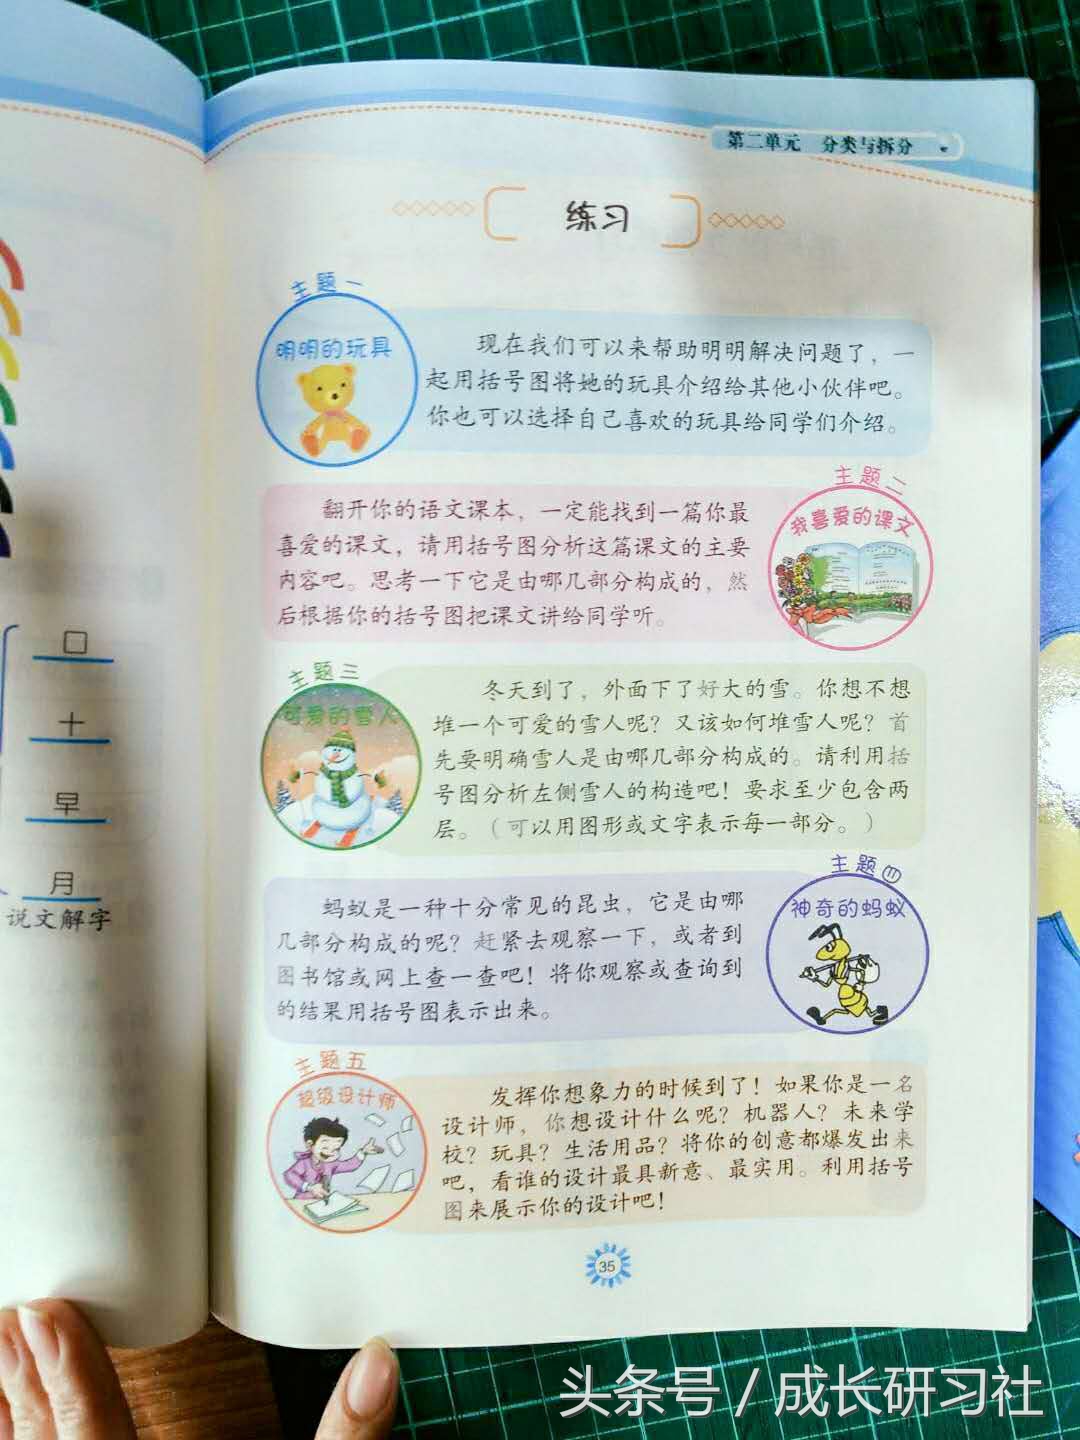 第二单元 分类与拆分
练习
主题一
明明的玩具
现在我们可以来帮助明明解决问题了，一
起用括号图将她的玩具介绍给其他小伙伴吧。
你也可以选择自己喜欢的玩具给同学们介绍。
主题二
我喜爱的课文
翻开你的语文课本，一定能找到一篇你最
喜爱的课文，请用括号图分析这篇课文的主要
内容吧。思考一下它是由哪几部分构成的，然
后根据你的括号图把课文讲给同学听。
主题三
可爱的雪人
冬天到了，外面下了好大的雪。你想不想
堆一个可爱的雪人呢？又该如何堆雪人呢？首
先要明确雪人是由哪几部分构成的。请利用括
号图分析左侧雪人的构造吧！要求至少包含两
层。（可以用图形或文字表示每一部分。）
主题四
神奇的蚂蚁
蚂蚁是一种十分常见的昆虫，它是由哪
几部分构成的呢？赶紧去观察一下，或者到
图书馆或网上查一查吧！将你观察或查询到
的结果用括号图表示出来。
主题五
超级设计师
发挥你想象力的时候到了！如果你是一名
设计师，你想设计什么呢？机器人？未来学
校？玩具？生活用品？将你的创意都爆发出来
吧，看谁的设计最具新意、最实用。利用括号
图来展示你的设计吧！
35
口
十
早
月
说文解字
头条号 / 成长研习社